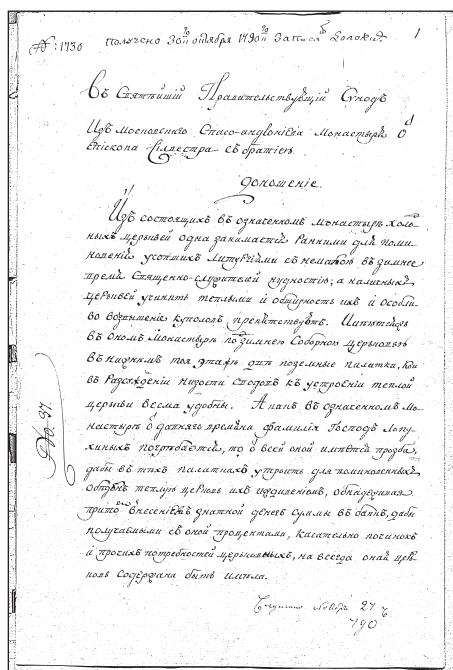 №: 1730 получено 30го октября 1790го записав доложит. 1
Въ Святѣйшій Правительствующій Сѵнодъ
Изъ московскаго Спасо-андроніева монастыря
Епископа Сілвестра съ братіею
доношеніе.
Изъ состоящихъ въ означенномъ монастырѣ холод
ныхъ церьквей одна занимается Ранними для поми
новеній усопшихъ Литургіями съ немалою въ зимнее
время Священно-служителей нуждностію; а
церьквей учинить теплыми и обширность ихъ и Особли
во возвышеніе куполовъ препятствуетъ.
въ ономъ монастырѣ подзимнею Соборною церьковью
въ нижнемъ тоя этажѣ двѣ поземные палатки, кои
въ Разсужденіи низости сводовъ къ устроенію теплой
церькви весма удобны. А какъ въ означенномъ Мо
настырѣ Ѿ давняго времѧни фамилія Господъ Лопу
хиныхъ погребается, то ѿ всей оной имѣется прозба,
дабы въ тѣхъ палаткахъ устроить для поминовенныхъ
Обѣденъ теплую церковь ихъ иждивеніемъ, обнадеживая
притомъ внесеніемъ знатной денегъ суммы въ банкъ, дабы
получаемыми съ оной процентами, касательно починокъ
и прочихъ потребностей церьковныхъ, на всегда оная цер
ковь Содержана быть имѣла.
Слушано Ноября 27 ч
790
№ 37.